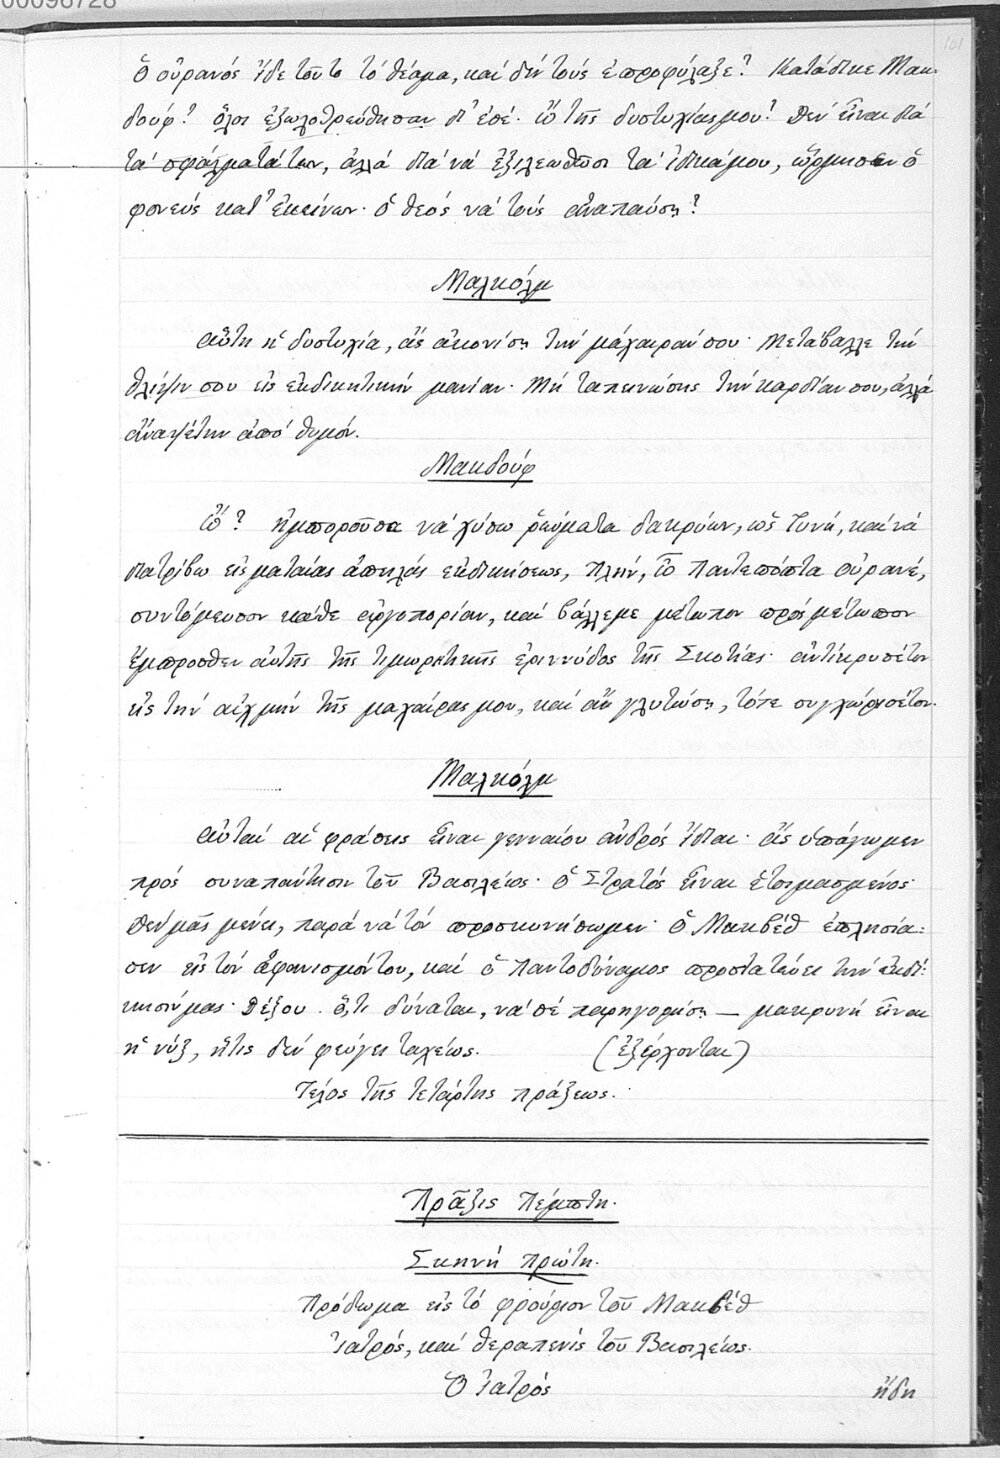 00096728
101
ὁ οὐρανός ἴδε τοῦτο τό θέαμα, καί δέν τούς ἐπροφύλαξε? Κατάδικε Μακ-
δούφ? ὅλοι ἐξωλοθρεύθησαν δι' ἐσέ· ὤ τῆς δυστυχίας μου? Δέν εἶναι διά
τά σφάλματά των, ἀλλά διά νά ἐξιλεωθῶσι τά ἰδικά μου, ὥρμησεν ὁ
φονεύς κατ' ἐκείνων· ὁ θεός νά τούς ἀναπαύσῃ?
Μαλκόλμ
αὕτη ἡ δυστυχία, ἄς ἀκονίσῃ τήν μάχαιράν σου· Μετάβαλλε τήν
θλίψιν σου εἰς ἐκδικητικήν μανίαν· Μή ταπεινώσῃς τήν καρδίαν σου, ἀλλά
ἄναψέ την ἀπό θυμόν.
Μακδούφ
Ὤ? ἠμποροῦσα νά χύσω ῥεύματα δακρύων, ὡς γυνή, καί νά
διατρίβω εἰς ματαίας ἀπειλάς ἐκδικήσεως, πλήν, ὦ Παντεπόπτα οὐρανέ,
συντόμευσον κάθε ἀργοπορίαν, καί βάλλε με μέτωπον πρός μέτωπον
ἔμπροσθεν αὐτῆς τῆς τιμωρητικῆς ἐριννύδος τῆς Σκοτίας· ἀντίκρυσέ τον
εἰς τήν αἰχμήν τῆς μαχαίρας μου, καί ἄν γλυτώσῃ, τότε συγχώρησέ τον.
Μαλκόλμ
αὐταί αἱ φράσεις εἶναι γενναίου ἀνδρός ἴδιαι· ἄς ὑπάγωμεν
πρός συναπάντησιν τοῦ Βασιλέως· ὁ Στρατός εἶναι ἑτοιμασμένος·
Δέν μᾶς μένει, παρά νά τόν προσκυνήσωμεν· ὁ Μακβέθ ἐπλησία-
σεν εἰς τόν ἀφανισμόν του, καί ὁ Παντοδύναμος προστατεύει τήν ἐκδί-
κησίν μας· Δέξου ὅ,τι δύναται, νά σέ παρηγορήσῃ — μακρυνή εἶναι
ἡ νύξ, ἥτις δέν φεύγει ταχέως. (ἐξέρχονται)
Τέλος τῆς τετάρτης πράξεως.
Πρᾶξις Πέμπτη.
Σκηνή πρώτη.
Πρόδωμα εἰς τό φρούριον τοῦ Μακβέθ
Ἰατρός, καί θεραπενίς τοῦ Βασιλέως.
Ὁ Ἰατρός
ἤδη